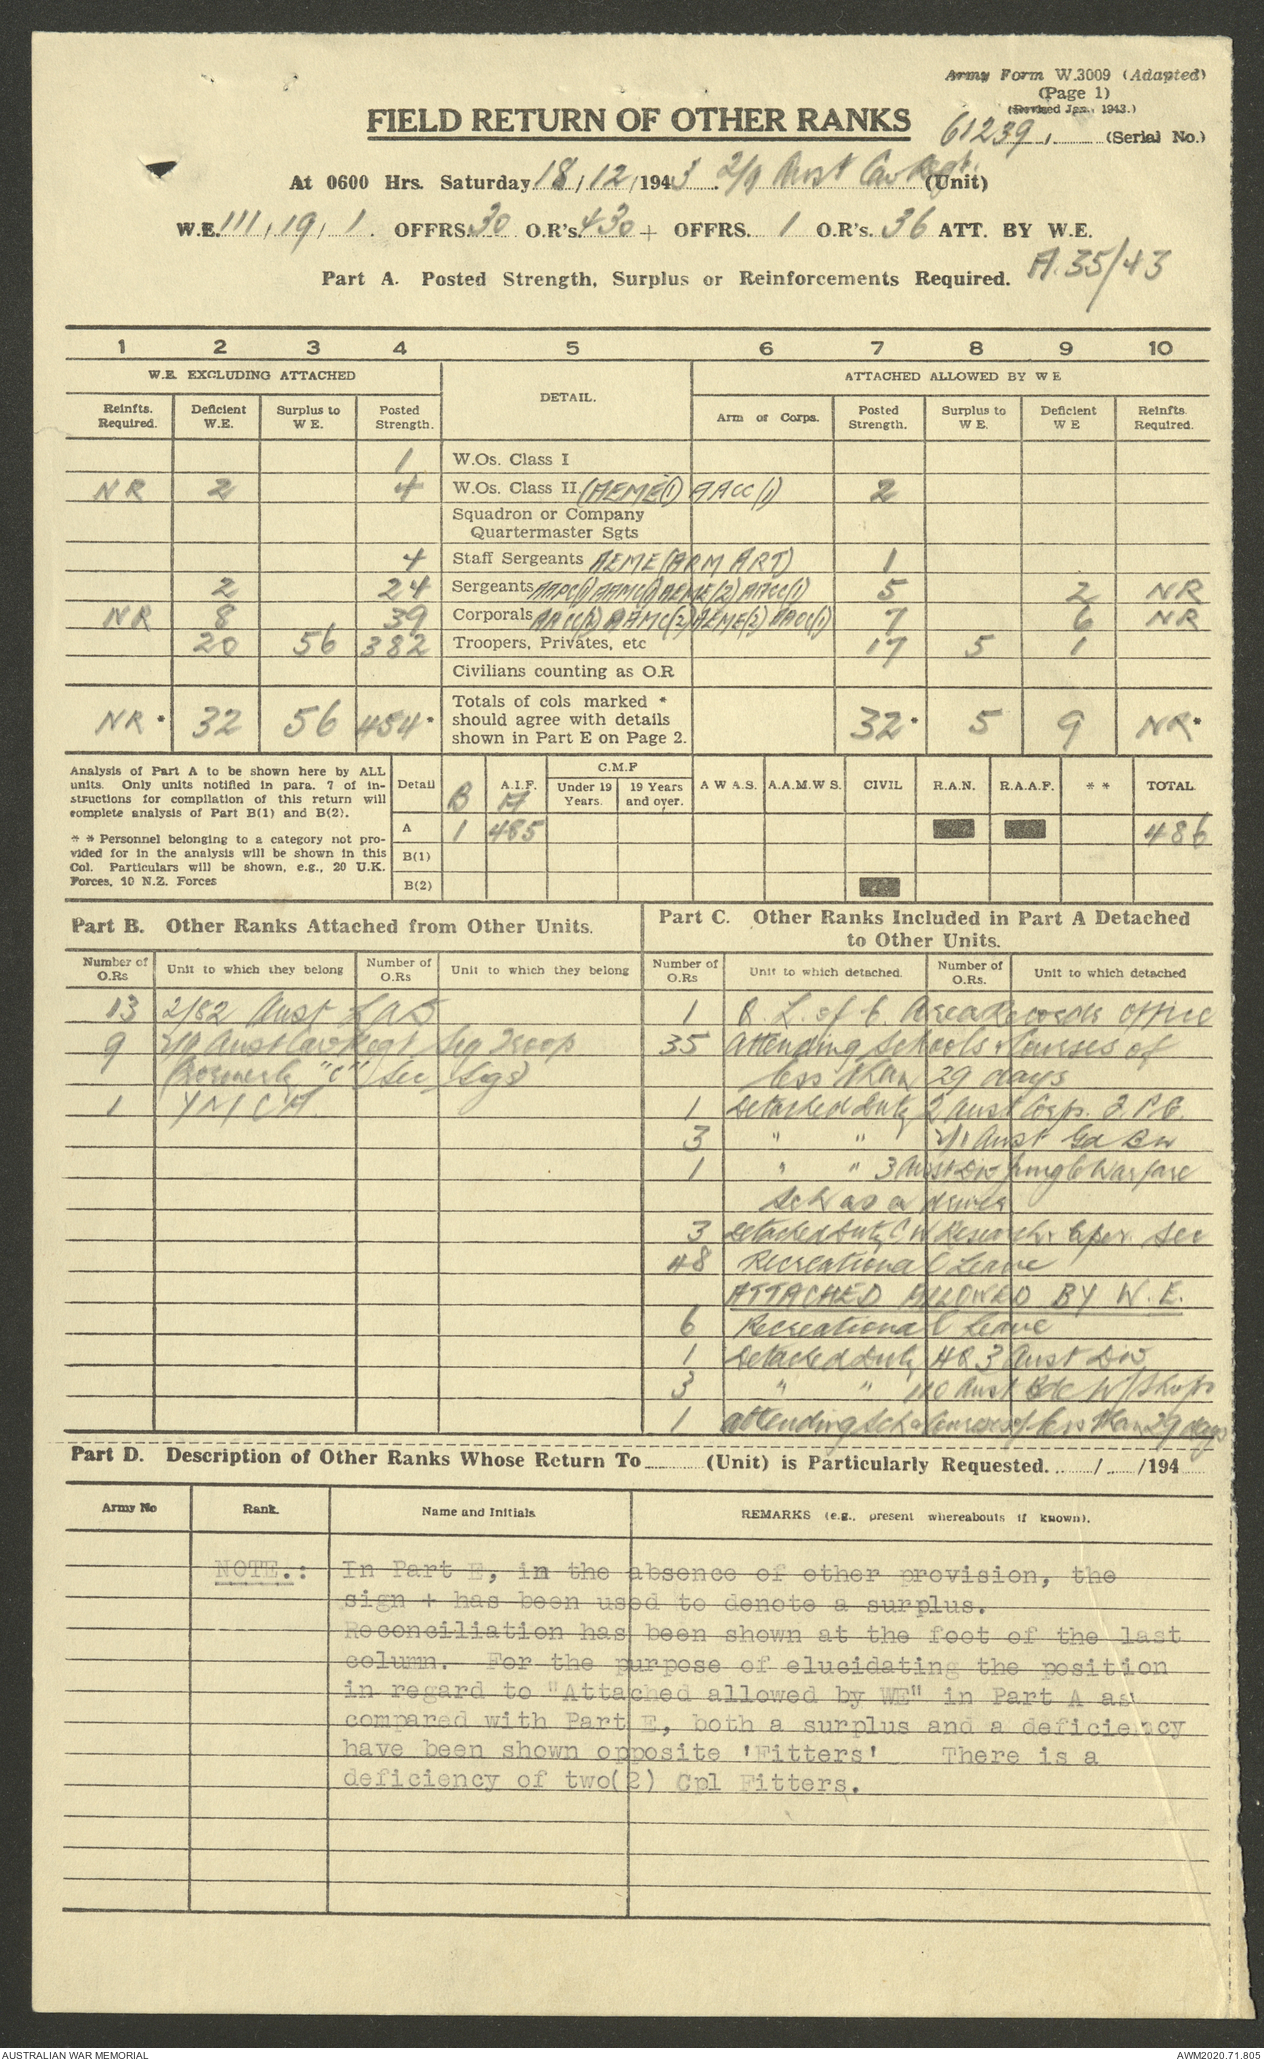 Army Form W.3009 (Adapted)
(Page 1)
(Revised Jan. 1943.)
FIELD RETURN OF OTHER RANKS
61239 (Serial No.)
At 0600 Hrs. Saturday 18/12/1943 Aust Cav Regt. (Unit)
W.E. 111/19/1. OFFRS. 30 O.R's. 430 + OFFRS. 1 O.R's. 36 ATT. BY W.E.
Part A. Posted Strength, Surplus or Reinforcements Required. A.35/43
1 2 3 4 5 6 7 8 9 10
W.E. EXCLUDING ATTACHED DETAIL. ATTACHED ALLOWED BY W E
Reinfts. Required. Deficient W.E. Surplus to W E. Posted Strength. Arm or Corps. Posted Strength. Surplus to W E. Deficient W E Reinfts. Required.
1 W.Os. Class I
NR 2 4 W.Os. Class II (AEME(1) AACC(1) 2
Squadron or Company
Quartermaster Sgts
4 Staff Sergeants AEME (ARM ART) 1
2 24 Sergeants AAPC(1) AAMC(1) AEME(2) AACC(1) 5 2 NR
NR 8 39 Corporals AACC(2) AAMC(2) AEME(2) AAOC(1) 7 6 NR
20 56 382 Troopers, Privates, etc 17 5 1
Civilians counting as O.R
NR * 32 56 454 * Totals of cols marked * should agree with details shown in Part E on Page 2. 32 * 5 9 NR *
Analysis of Part A to be shown here by ALL
units. Only units notified in para. 7 of in-
structions for compilation of this return will
complete analysis of Part B(1) and B(2).
* * Personnel belonging to a category not pro-
vided for in the analysis will be shown in this
Col. Particulars will be shown, e.g., 20 U.K.
Forces, 10 N.Z. Forces
Detail B A.I.F. A C.M.F Under 19 Years. 19 Years and over. A W A S. A.A.M.W S. CIVIL R.A.N. R.A.A.F. * * TOTAL
A 1 485 486
B(1)
B(2)
Part B. Other Ranks Attached from Other Units.
Number of O.Rs Unit to which they belong Number of O.Rs Unit to which they belong
13 2/82 Aust LAD
9 Aust Cav Regt Sig Troop
(formerly "C" Sec Sigs)
1 YMCA
Part C. Other Ranks Included in Part A Detached
to Other Units.
Number of O.Rs Unit to which detached. Number of O.Rs. Unit to which detached
1 Q. L. of C. Area Records Office
35 Attending Schools & Courses of
less than 29 days
1 Detached Duty 2 Aust Corps
3 " " 2/1 Aust Gd Bn
1 " " 3 Aust Div Jungle Warfare
Sch as a driver
3 Detached Duty CW Research & Exper. Sec
48 Recreational Leave
ATTACHED ALLOWED BY W.E.
6 Recreational Leave
1 Detached Duty HQ 3 Aust Div
3 " " 110 Aust Bde W/Shops
1 attending Sch & Courses of less than 29 days
Part D. Description of Other Ranks Whose Return To (Unit) is Particularly Requested. / /194
Army No Rank. Name and Initials REMARKS (e.g., present whereabouts if known).
NOTE.: In Part E, in the absence of other provision, the
sign + has been used to denote a surplus.
Reconciliation has been shown at the foot of the last
column. For the purpose of elucidating the position
in regard to "Attached allowed by WE" in Part A as
compared with Part E, both a surplus and a deficiency
have been shown opposite 'Fitters' There is a
deficiency of two(2) Cpl Fitters.
AUSTRALIAN WAR MEMORIAL
AWM2020.71.805